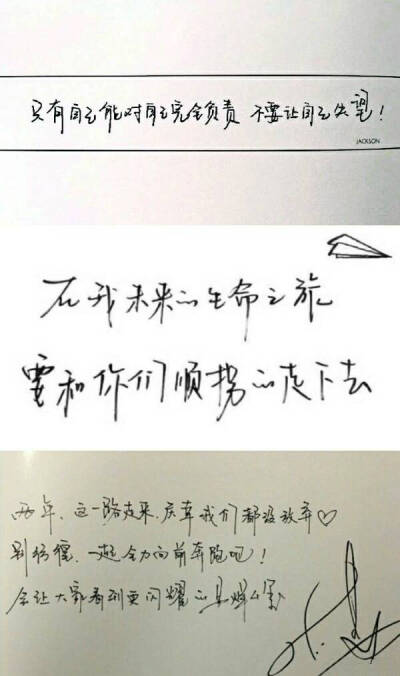 只有自己能对自己完全负责 不要让自己失望！
JACKSON
在我未来的生命之旅
要和你们顺拐的走下去
两年，这一路走来，庆幸我们都没放弃♡
别彷徨，一起全力向前奔跑吧！
会让大家看到更闪耀的